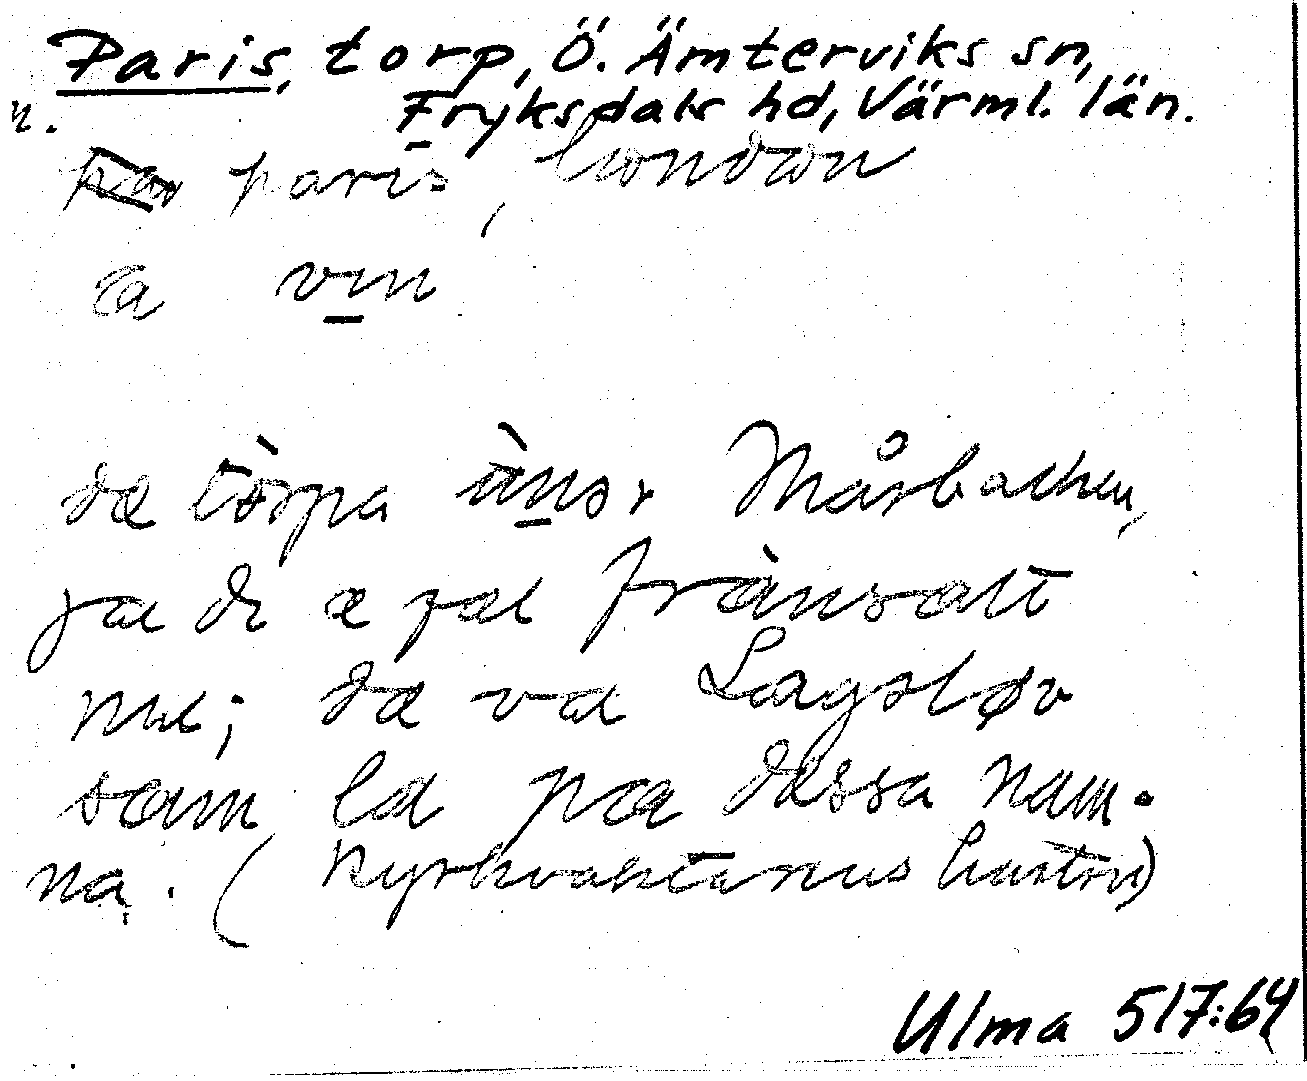 Paris, torp, Ö. Ämterviks sn,
n. Fryksdals hd, Värml. län.
paris, london
a vin
dæ torpa unər Mårbacken,
ja di æ fræmsatt
nu; dæ va Lagsløv
sam la pa dæssa nam-
na. (Kyrkvaktarnus hustru)
Ulma 517:64